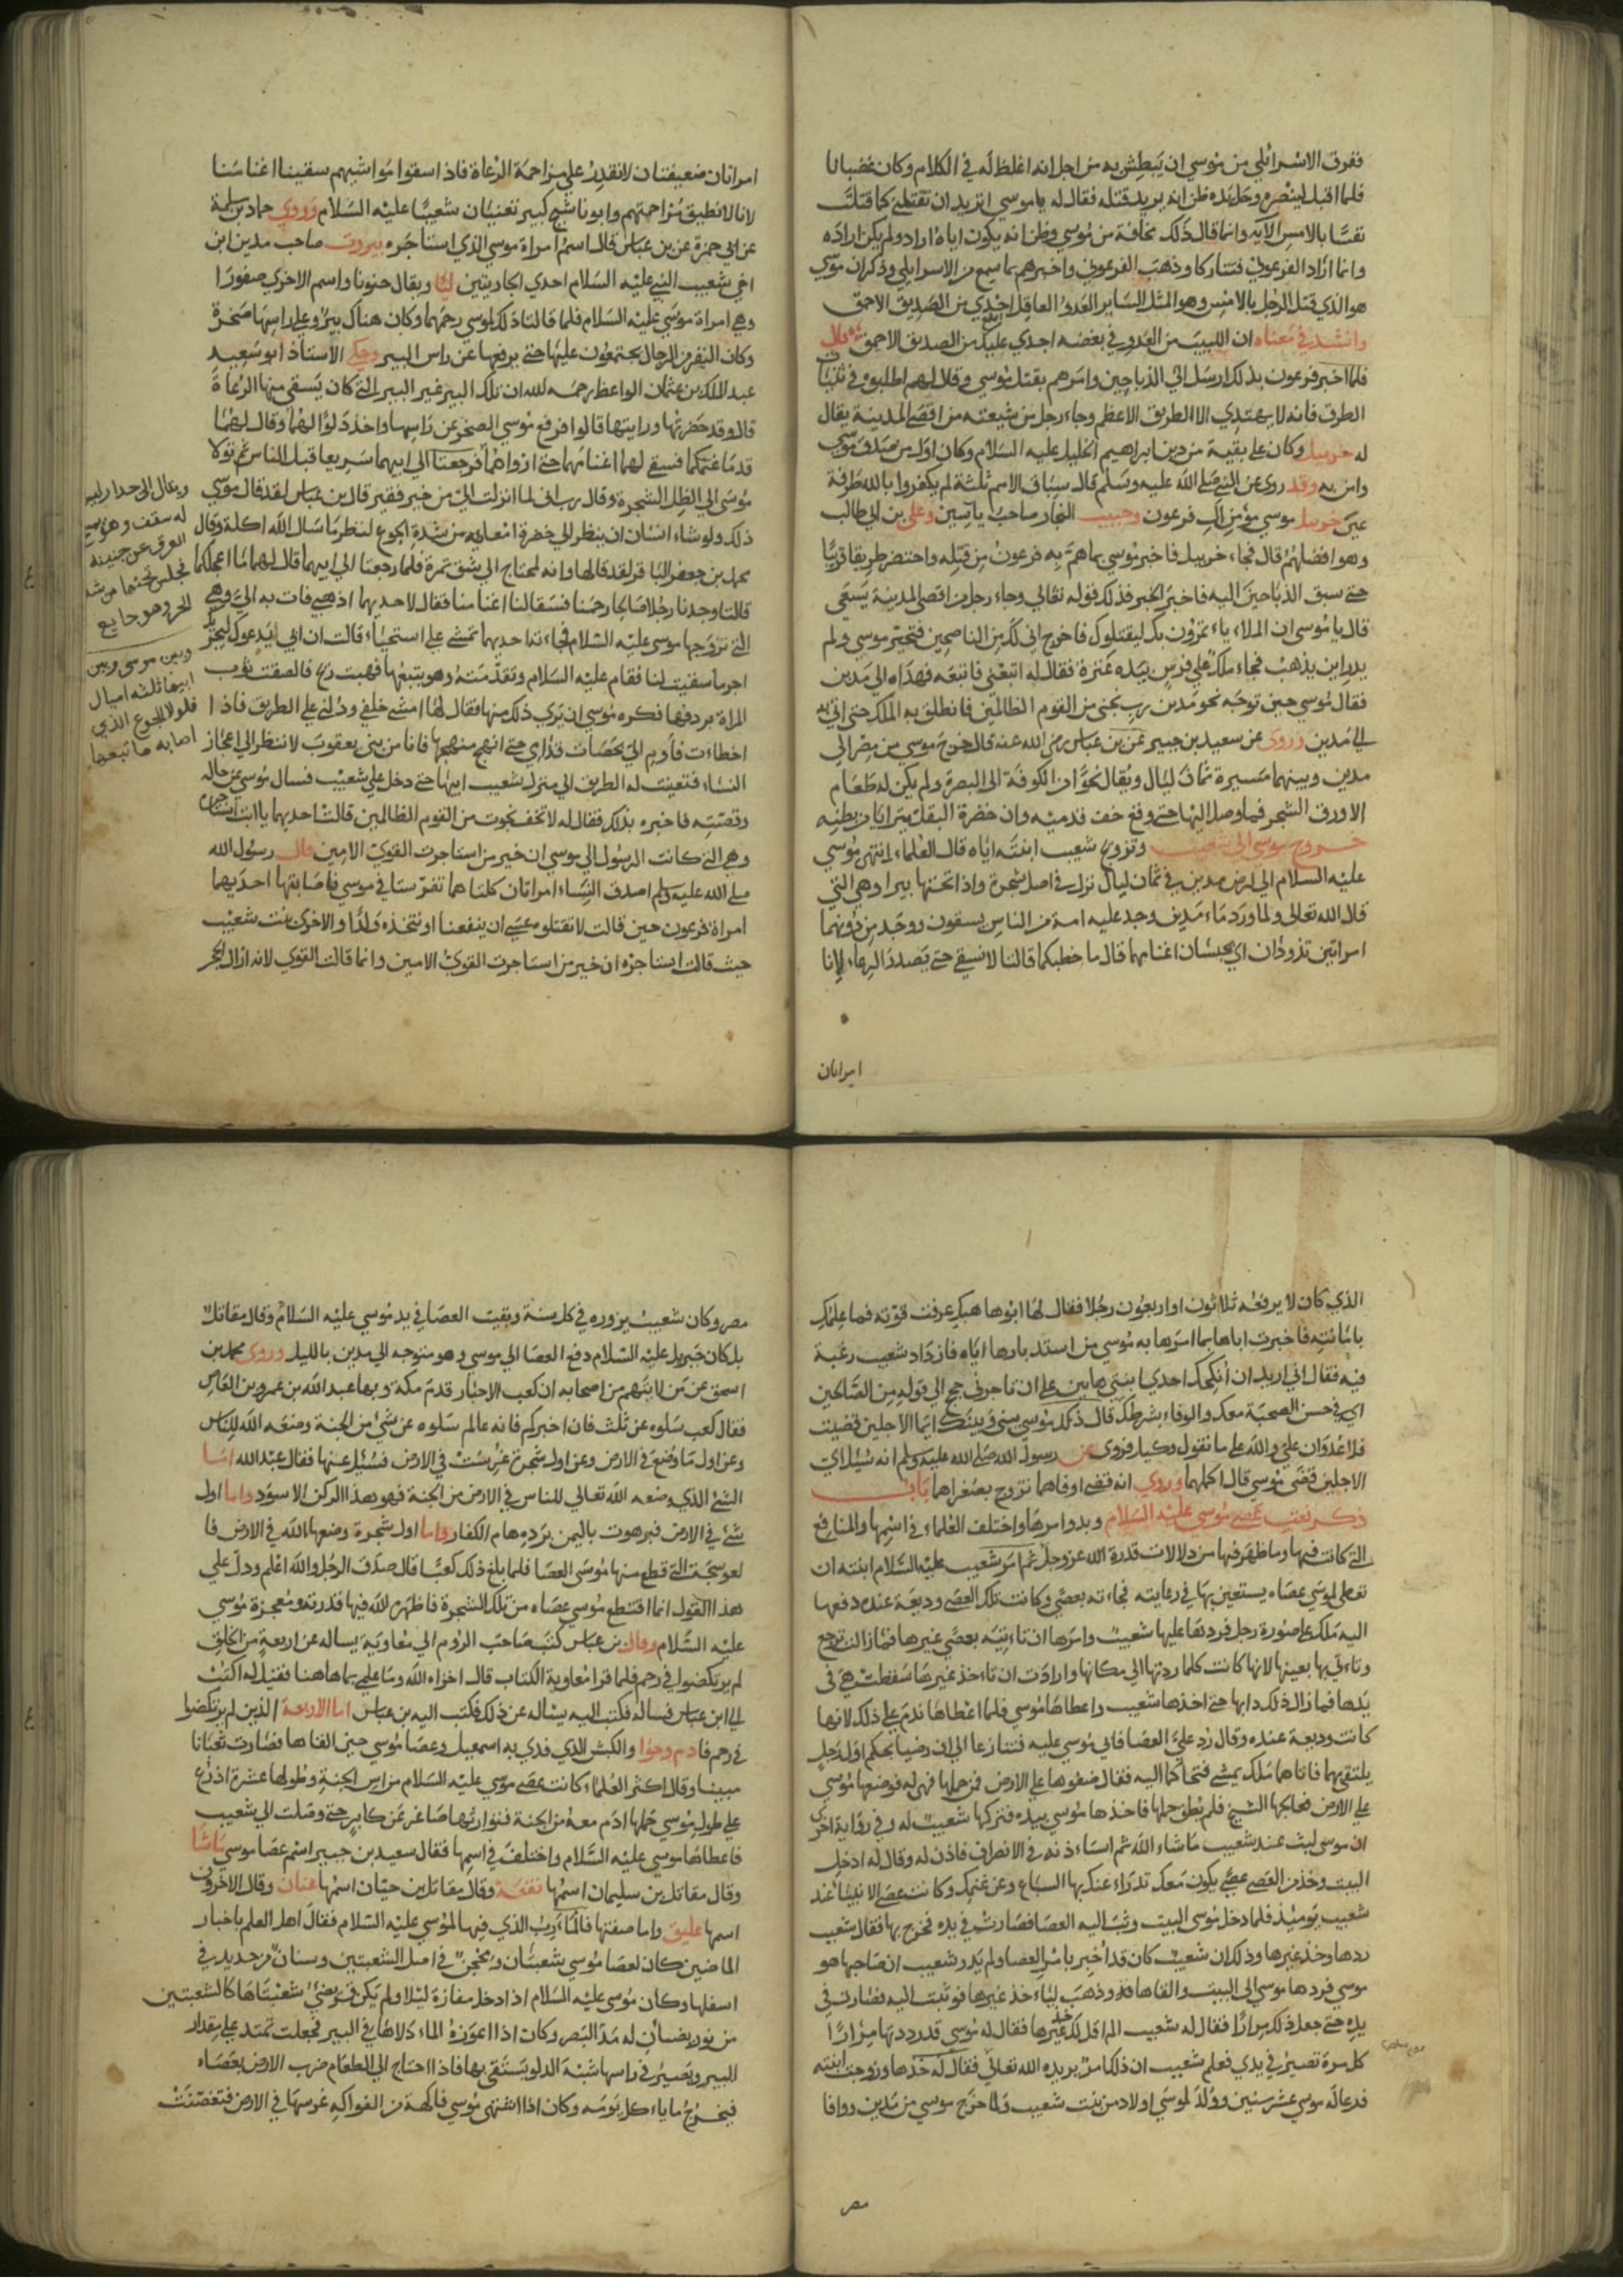 ففرق الاسرائلي من موسى ان يبطش به من اجل انه اغلظ له في الكلام وكان غضبانا
فلما اقبل لينصره وحل يده ظن انه يريد قتله فقال له ياموسي اتريد ان تقتلني كما قتلت
نفسا بالامس الآية وانما قال ذلك مخافة من موسي وظن انه يكون اياه اراد ولم يكن اراده
وانما اراد الفرعوني فتتاركا وذهب الفرعوني واخبرهم بما سمع من الاسرايلي وذكر ان موسي
هو الذي قتل الرجل بالامس وهو المثل الساير العدو العاقل اجدي من الصديق الاحمق
وانشد في معناه ان اللبيب من العدو في بغضه اجدي عليك من الصديق الاحمق قال
فلما اخبر فرعون بذلك ارسل الي الذباحين وامرهم بقتل موسي وقال لهم اطلبوه في ثنيات
الطرق فانه لا يهتدي الا الطريق الاعظم وجاء رجل من شيعته من اقصي المدينة يقال
له خربيل وكان علي بقية من دين ابراهيم الخليل عليه السلام وكان اول من صدق موسي
وامن به وقد روي عن النبي صلي الله عليه وسلم قال سباق الامم ثلثة لم يكفروا بالله طرفة
عين خربيل موسي مؤمن ال فرعون وحبيب النجار صاحب ياسين وعلي بن ابي طالب
وهو افضلهم قال فجاء خربيل فاخبر موسي بما هم به فرعون من قتله واختصر طريقا قريبا
حتي سبق الذباحين اليه فاخبر الخبر فذلك قوله تعالي وجاء رجل من اقصي المدينة يسعي
قال يا موسي ان الملاء ياتمرون بك ليقتلوك فاخرج اني لك من الناصحين فتحير موسي ولم
يدر اين يذهب فجاء ملك علي فرس بيده عنزة فقال له اتبعني فاتبعه فهداه الي مدين
فقال موسي حين توجه نحو مدين رب نجني من القوم الظالمين فانطلق به الملك حتي اتي به
الي مدين وروي عن سعيد بن جبير عن بن عباس رضي الله عنه قال خرج موسي من مصر الي
مدين وبينهما مسيرة ثمان ليال ويقال نحوا من الكوفة الي البصرة ولم يكن له طعام
الا ورق الشجر فما وصل اليها حتي وقع خف قدميه وان خضرة البقل يترايا من بطنه
خروج موسي الي شعيب وتزوج شعيب ابنته اياه قال العلماء انتهي موسي
عليه السلام الي ارض مدين في ثمان ليال نزل في اصل شجرة واذا تحتها بير اوهي التي
قال الله تعالي ولما ورد ماء مدين وجد عليه امة من الناس يسقون ووجد من دونهما
امراتين تذودان اي تحبسان اغنامهما قال ما خطبكما قالتا لا نسقي حتي يصدر الرعاء لانا
امراتان
امراتان ضعيفتان لا نقدر علي مزاحمة الرعاة فاذا سقوا مواشيهم سقينا اغنامنا
لانا لا نطيق مزاحمتهم وابونا شيخ كبير تعنيان شعيبا عليه السلام وروي حماد بن سلمة
عن ابي حمزة عن بن عباس قال اسم امراة موسي الذي استاجره يبروت صاحب مدين ابن
اخي شعيب النبي عليه السلام احدي الجاريتين ليا ويقال حنونا واسم الاخري صفورا
وهي امراة موسي عليه السلام فلما قالتا ذلك لموسي رحمهما وكان هناك بير وعلي راسها صخرة
وكان النفر من الرجال يجتمعون عليها حتي يرفعها عن راس البير وحكي الاستاذ ابو سعيد
عبد الملك بن عثمان الواعظ رحمه الله ان تلك البير غير البير التي كان يسقي منها الرعاة
قال وقد حضرتها ورايتها قالوا فرفع موسي الصخر عن راسها واخذ دلوا لهما وقال لهما
قدما غنمكما فسقي لهما اغنامهما حتي ارواهما فرجعتا الي ابيهما سريعا قبل الناس ثم تولا
موسي الي الظل الشجرة وقال رب اني لما انزلت الي من خير فقير قال بن عباس لقد قال موسي
ذلك ولو شاء انسان ان ينظر الي خضرة امعايه من شدة الجوع لنظر ما سال الله اكلة وقال
محمد بن جعفر البا قر لقد قالها وانه لمحتاج الي شق تمرة فلما رجعتا الي ابيهما قال لهما ما اعجلكما
قالتا وجدنا رجلا صالحا رحمنا فسقا لنا اغنامنا فقال لاحديهما اذهبي فات به الي وهي
التي تزوجها موسي عليه السلام فجاءته احديهما تمشي علي استحياء قالت ان ابي يدعوك ليجزيك
اجر ما سقيت لنا فقام عليه السلام وتقدمته وهو يتبعها فهبت ريح فالصقت ثوب
المراة بردفها فكره موسي ان يري ذلك منها فقال لها امشي خلفي ودليني علي الطريق فاذا
اخطاءت فارم الي بحصاة قذاي حتي انهج منهجها فانا من بني يعقوب لا ننظر الي اعجاز
النساء فتعينت له الطريق الي منزل شعيب ابيها حتي دخل علي شعيب فسال موسي عن حاله
وقصته فاخبره بذلك فقال له لا تخف نجوت من القوم الظالمين قالت احديهما يا ابت استاجره
وهي التي كانت الرسول الي موسي ان خير من استاجرت القوي الامين قال رسول الله
صلي الله عليه وسلم اصدق النساء امراتان كلتاهما تفرستا في موسي فاصابتها احديهما
امراة فرعون حين قالت لا تقتلوه عسي ان ينفعنا او نتخذه ولدا والاخري بنت شعيب
حيث قالت استاجره ان خير من استاجرت القوي الامين وانما قالت القوي لانه ازال الحجر
ويقال الي جدار ليس
له سقف وهو يمسح
العرق عن جبينه
فجلس تحتها من شدة
الحر وهو جايع
وبين موسي وبين
ابيهما ثلثة اميال
فلولا الجوع الذي
اصابه ما تبعها
الذي كان لا يرفعه ثلاثون او اربعون رجلا فقال لها ابوها هبك عرفت قوته فما علمك
بامانته فاخبرت اباها بما امرها به موسي من استدبارها اياه فازداد شعيب رغبة
فيه فقال اني اريد ان أنكحك احدي ابنتي هاتين علي ان تاجرني حجج الي قوله من الصالحين
اي في حسن الصحبة معك والوفاء بشرطك قال ذلك موسي بيني وبينك ايما الاجلين قضيت
فلا عدوان علي والله علي ما نقول وكيل فروي عن رسول الله صلي الله عليه وسلم انه سئل اي
الاجلين قضي موسي قال اكملهما وروي انه قضي اوفاهما تزوج بصغراهما باب
ذكر نعت عصي موسي عليه السلام وبدو امرها واختلف العلماء في اسمها والمنافع
التي كانت فيها وما ظهر فيها من دلالات قدرة الله عز وجل ثم امر شعيب عليه السلام ابنته ان
تعطي لموسي عصاه يستعين بها في رعايته فجاءته بعصي وكانت تلك العصي وديعة عنده دفعها
اليه ملك علي صورة رجل فردتها عليها شعيب وامرها ان تاءتيه بعصي غيرها فما زالت ترجع
وتاءتي بها بعينها لانها كانت كلما ردتها الي مكانها وارادت ان تاءخذ غيرها سقطت هي في
يدها فما زال ذلك دابها حتي اخذها شعيب واعطاها موسي فلما اعطاها ندم علي ذلك لانها
كانت وديعة عنده وقال رد علي العصا فابي موسي عليه فتنازعا الي ان رضيا بحكم اول رجل
يلتقيهما فاتاهما ملك يمشي فتحاكما اليه فقال ضعوها علي الارض فمن حملها فهي له فوضعها موسي
علي الارض فعالجها الشيخ فلم يطق حملها فاخذها موسي بيده فتركها شعيب له وفي رواية اخري
ان موسي لبث عند شعيب ما شاء الله ثم استاءذنه في الانصراف فاذن له وقال له ادخل
البيت وخذ من العصي عصي يكون معك تدراء عنك بها السباع وعن غنمك وكانت عصي الانبياء عند
شعيب يوميذ فلما دخل موسي البيت وثبت اليه العصا فصارت في يده فخرج بها فقال شعيب
ردها وخذ غيرها وذلك ان شعيب كان قد أخبر بامر العصا ولم يدر شعيب ان صاحبها هو
موسي فردها موسي الي البيت والقاها وذهب لياءخذ غيرها فوثبت اليه فصارت في
يده حتي جعل ذلك مرارا فقال له شعيب الم اقل لك خذ غيرها فقال له موسي قد رددتها مرارا
كل مرة تصير في يدي فعلم شعيب ان ذلك امر يريده الله تعالي فقال له خذها وزوجت ابنته
فرعا له موسي عشر سنين وولد لموسي اولاد من بنت شعيب ولما خرج موسي من مدين ووافا
مصر
مصر وكان شعيب يزوره في كل سنة وبقيت العصا في يد موسي عليه السلام وقال مقاتل
بل كان جبريل عليه السلام دفع العصا الي موسي وهو متوجه الي مدين بالليل وروي محمد بن
اسحق عن من لا يتهم من اصحابه ان كعب الاحبار قدم مكة وبها عبد الله بن عمرو بن العاص
فقال كعب سلوه عن ثلث فان اخبركم فانه عالم سلوه عن شيء من الجنة وضعه الله للناس
وعن اول ما وضع في الارض وعن اول شجرة غرست في الارض فسئل عنها فقال عبد الله اما
الشيء الذي وضعه الله تعالي للناس في الارض من الجنة فهو هذا الركن الاسود واما اول
شيء في الارض فبرهوت باليمن يرده هام الكفار واما اول شجرة وضعها الله في الارض فا
لعوسجة التي قطع منها موسي العصا فلما بلغ ذلك كعبا قال صدق الرجل والله اعلم ودل علي
هذا القول انما اقتطع موسي عصاه من تلك الشجرة فاظهر الله فيها قدرته ومعجزة موسي
عليه السلام وقال بن عباس كتب صاحب الروم الي معاوية يساله عن اربعة من الخلق
لم يرتكضوا في رحم فلما قرا معاوية الكتاب قال اخزاه الله وما علمي بما هاهنا فقيل له اكتب
الي ابن عباس فساله فكتب اليه يساله عن ذلك فكتب اليه بن عباس اما الاربعة الذين لم يرتكضوا
في رحم فادم وحوا والكبش الذي فدي به اسمعيل وعصا موسي حين القاها فصارت ثعبانا
مبينا وقال اكثر العلماء كانت عصي موسي عليه السلام من اس الجنة وطولها عشرة اذرع
علي طول موسي حملها ادم معه من الجنة فتوارثها صاغر عن كابر حتي وصلت الي شعيب
فاعطاها موسي عليه السلام واختلف في اسمها فقال سعيد بن جبير اسم عصا موسي ماشا
وقال مقاتل بن سليمان اسمها نفعة وقال مقاتل بن حيان اسمها غنان وقال الاخرون
اسمها عليق واما صفتها فالمآرب الذي فيها لموسي عليه السلام فقال اهل العلم باخبار
الماضين كان لعصا موسي شعبتان ومحجن في اصل الشعبتين وسنان من حديد في
اسفلها وكان موسي عليه السلام اذا دخل مفازة ليلا ولم يكن قمر يضيء شعبتاها كالشعبتين
من نور يضيان له مد البصر وكان اذا اعوزه الماء دلاها في البير فجعلت تمتد علي مقدار
البير ويصير في راسها شبه الدلو يستقي بها فاذا احتاج الي الطعام ضرب الارض بعصاه
فيخرج ما ياءكل يومه وكان اذا اشتهي موسي فاكهة من الفواكه غرسها في الارض فتغصنت